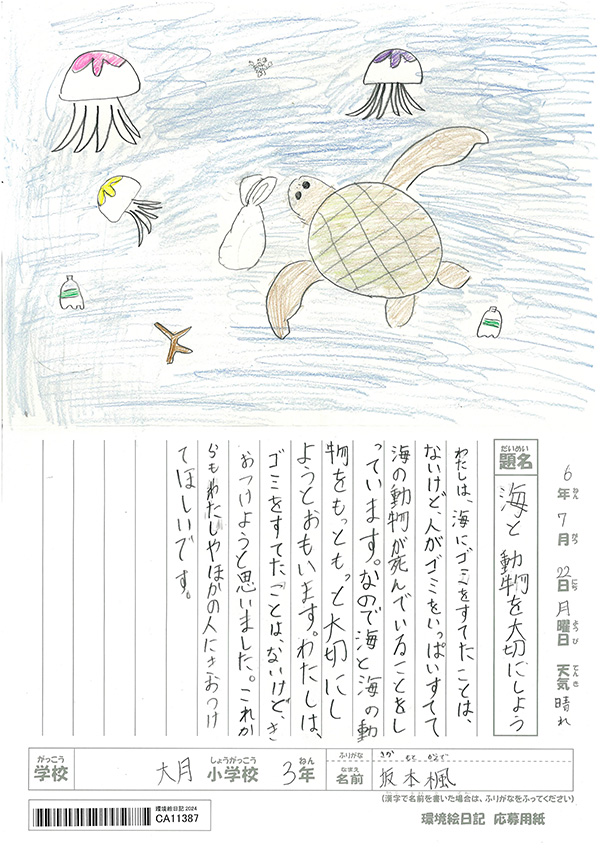 6年ねん 7月がつ 22日にち 月曜日ようび 天気てんき 晴れ
題名だいめい 海と動物を大切にしよう
わたしは、海にゴミをすてたことは、
ないけど、人がゴミをいっぱいすてて
海の動物が死んでいることをし
っています。なので海と海の動
物をもっともっと大切にし
ようとおもいます。わたしは、
ゴミをすてたことは、ないけど、き
おつけようと思いました。これか
らもわたしやほかの人にきおつけ
てほしいです。
がっこう しょうがっこう ねん ふりがな さか もと かえで
学校 大月 小学校 3年 なまえ 名前 坂本楓
(漢字で名前を書いた場合は、ふりがなをふってください)
環境絵日記2024
CA11387
環境絵日記 応募用紙